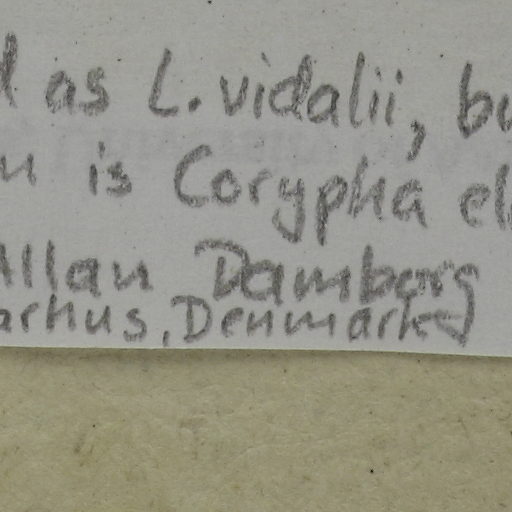 as L. vidalii,
is Corypha
Allan Damborg
arhus, Denmark